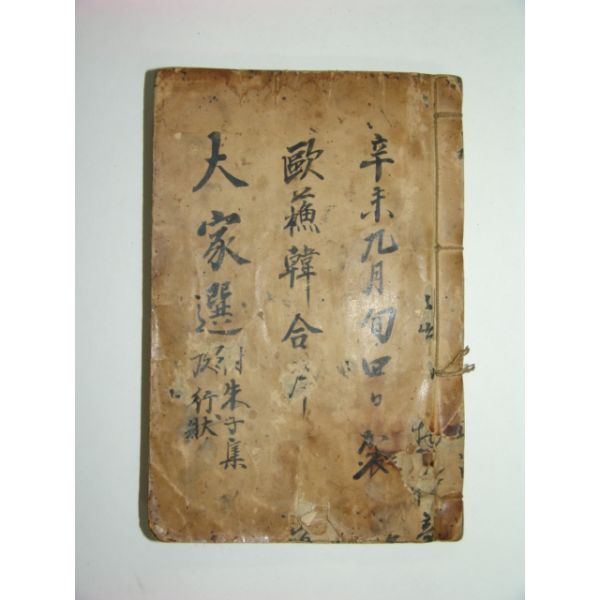 辛未九月旬四日裝
歐蘓韓合
大家選
付朱子集
及行狀